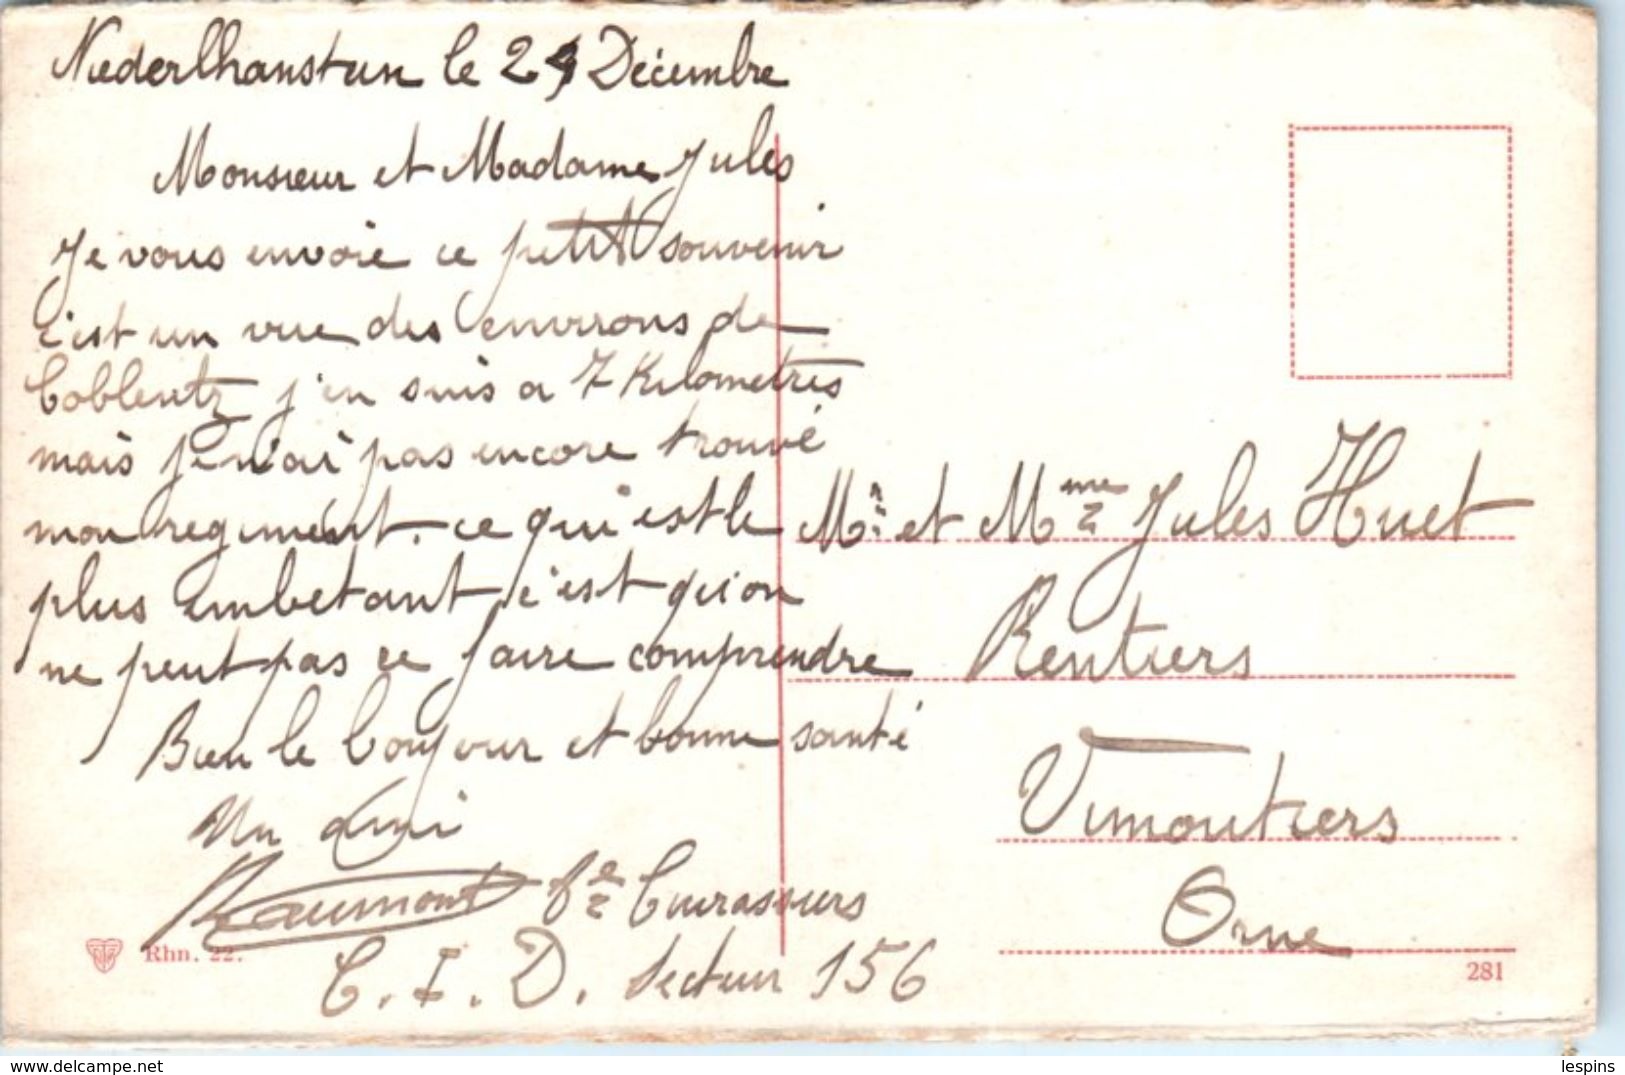 Niederlhanstun le 24 Décembre
Monsieur et Madame Jules
Je vous envoie ce petit souvenir
c'est un vue des environs de
Coblentz j'en suis a 7 Kilometres
mais je n'ai pas encore trouvé
mon regiment. ce qui est le
plus embetant c'est qu'on
ne peut pas ce faire comprendre
Bien le bonjour et bonne santé
Un ami
Beaumont 8e Cuirassiers
C.I.D. Secteur 156
Rhn. 22.
Mr. et Mme Jules Huet
Rentiers
Vimoutiers
Orne
281
www.delcampe.net
lespins